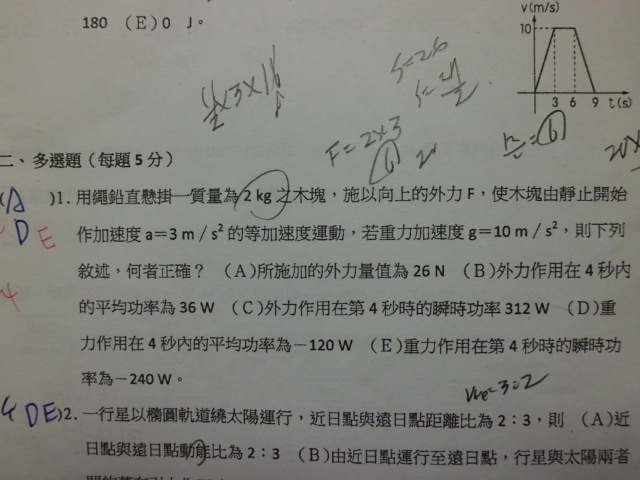 180 (E)0 J。
v(m/s)
10
3 6 9 t(s)
F=2×3
二、多選題(每題5分)
(A D E)1. 用繩鉛直懸掛一質量為 2 kg 之木塊,施以向上的外力 F,使木塊由靜止開始
作加速度 a=3 m/s² 的等加速度運動,若重力加速度 g=10 m/s²,則下列
敘述,何者正確? (A)所施加的外力量值為 26 N (B)外力作用在 4 秒內
的平均功率為 36 W (C)外力作用在第 4 秒時的瞬時功率 312 W (D)重
力作用在 4 秒內的平均功率為-120 W (E)重力作用在第 4 秒時的瞬時功
率為-240 W。
3:2
DE)2. 一行星以橢圓軌道繞太陽運行,近日點與遠日點距離比為 2:3,則 (A)近
日點與遠日點動能比為 2:3 (B)由近日點運行至遠日點,行星與太陽兩者